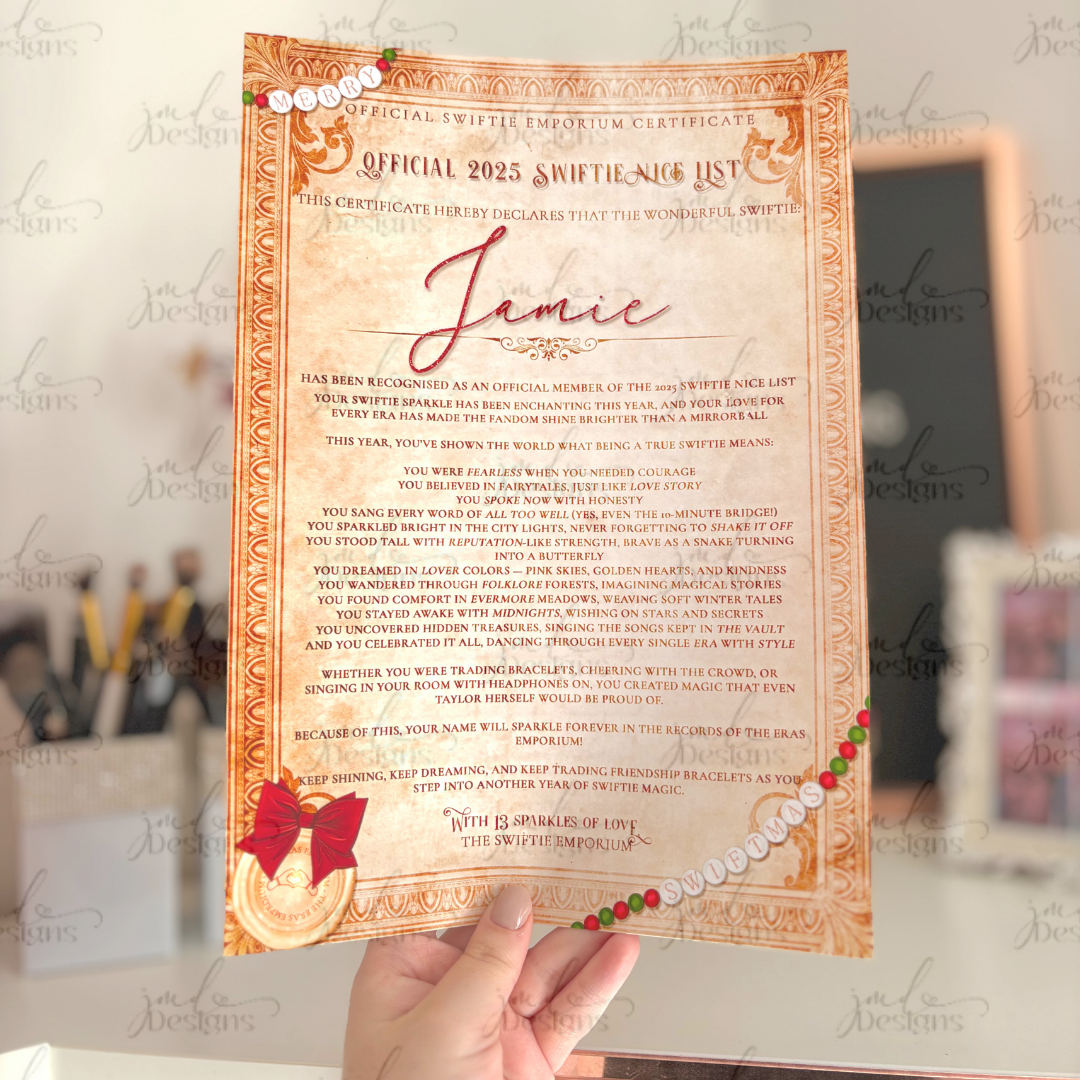 MERRY
OFFICIAL SWIFTIE EMPORIUM CERTIFICATE
OFFICIAL 2025 SWIFTIE NICE LIST
THIS CERTIFICATE HEREBY DECLARES THAT THE WONDERFUL SWIFTIE:
Jamie
HAS BEEN RECOGNISED AS AN OFFICIAL MEMBER OF THE 2025 SWIFTIE NICE LIST
YOUR SWIFTIE SPARKLE HAS BEEN ENCHANTING THIS YEAR, AND YOUR LOVE FOR
EVERY ERA HAS MADE THE FANDOM SHINE BRIGHTER THAN A MIRRORBALL
THIS YEAR, YOU'VE SHOWN THE WORLD WHAT BEING A TRUE SWIFTIE MEANS:
YOU WERE FEARLESS WHEN YOU NEEDED COURAGE
YOU BELIEVED IN FAIRYTALES, JUST LIKE LOVE STORY
YOU SPOKE NOW WITH HONESTY
YOU SANG EVERY WORD OF ALL TOO WELL (YES, EVEN THE 10-MINUTE BRIDGE!)
YOU SPARKLED BRIGHT IN THE CITY LIGHTS, NEVER FORGETTING TO SHAKE IT OFF
YOU STOOD TALL WITH REPUTATION-LIKE STRENGTH, BRAVE AS A SNAKE TURNING
INTO A BUTTERFLY
YOU DREAMED IN LOVER COLORS — PINK SKIES, GOLDEN HEARTS, AND KINDNESS
YOU WANDERED THROUGH FOLKLORE FORESTS, IMAGINING MAGICAL STORIES
YOU FOUND COMFORT IN EVERMORE MEADOWS, WEAVING SOFT WINTER TALES
YOU STAYED AWAKE WITH MIDNIGHTS, WISHING ON STARS AND SECRETS
YOU UNCOVERED HIDDEN TREASURES, SINGING THE SONGS KEPT IN THE VAULT
AND YOU CELEBRATED IT ALL, DANCING THROUGH EVERY SINGLE ERA WITH STYLE
WHETHER YOU WERE TRADING BRACELETS, CHEERING WITH THE CROWD, OR
SINGING IN YOUR ROOM WITH HEADPHONES ON, YOU CREATED MAGIC THAT EVEN
TAYLOR HERSELF WOULD BE PROUD OF.
BECAUSE OF THIS, YOUR NAME WILL SPARKLE FOREVER IN THE RECORDS OF THE ERAS
EMPORIUM!
KEEP SHINING, KEEP DREAMING, AND KEEP TRADING FRIENDSHIP BRACELETS AS YOU
STEP INTO ANOTHER YEAR OF SWIFTIE MAGIC.
WITH 13 SPARKLES OF LOVE
THE SWIFTIE EMPORIUM
SWIFTMAS
THE ERAS
jmd Designs